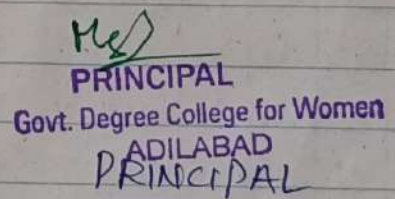 PRINCIPAL
Govt. Degree College for Women
ADILABAD
PRINCIPAL